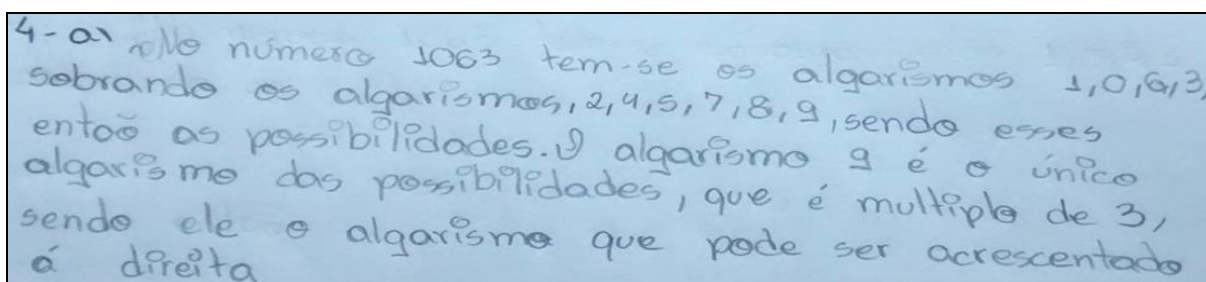 4-a) No número 1063 tem-se os algarismos 1,0,6,3,
sobrando os algarismos, 2,4,5,7,8,9, sendo esses
então as possibilidades. O algarismo 9 é o único
algarismo das possibilidades, que é multiplo de 3,
sendo ele o algarismo que pode ser acrescentado
á direita